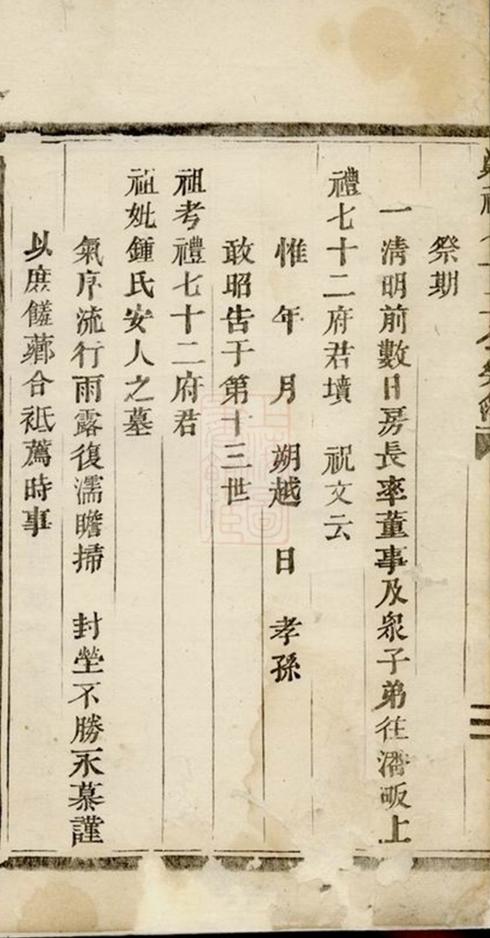 祭期
一清明前數日房長率董事及衆子弟往潘畈上
禮七十二府君墳 祝文云
惟 年 月 朔越 日 孝孫
敢昭告于第十三世
祖考禮七十二府君
祖妣鍾氏安人之墓
氣序流行雨露復濡瞻掃 封塋不勝永慕謹
以庶饈薌合祗薦時事